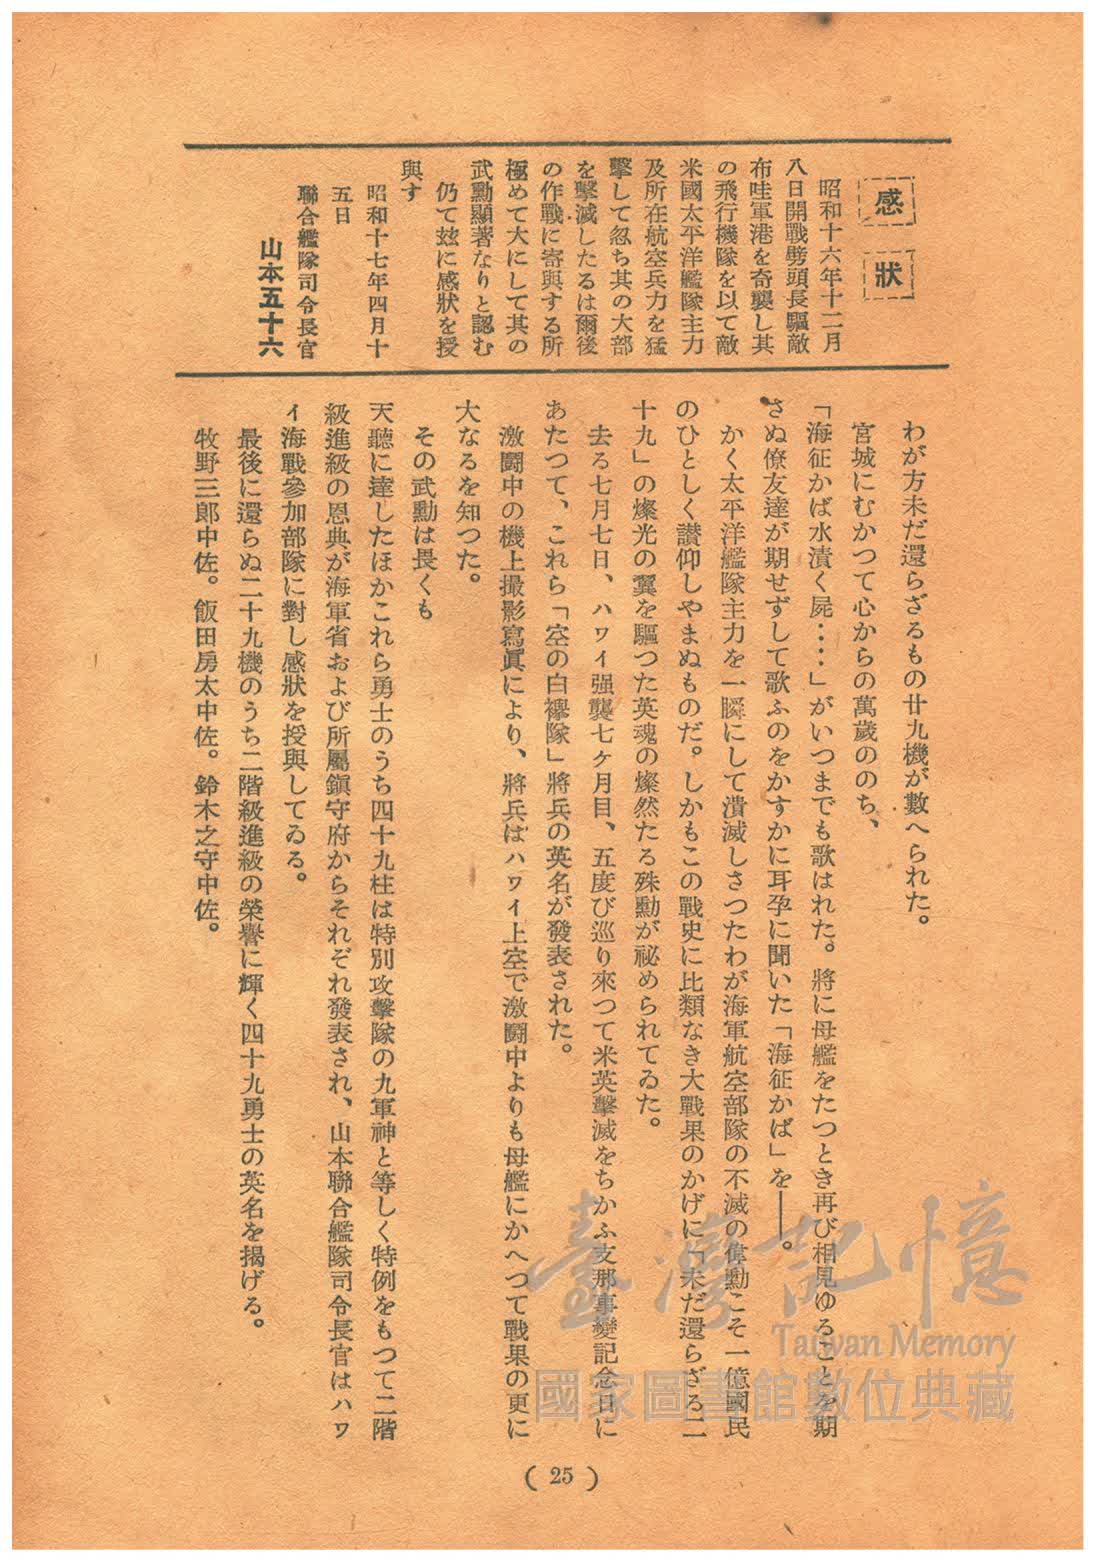 感狀
昭和十六年十二月
八日開戰劈頭長驅敵
布哇軍港を奇襲し其
の飛行機隊を以て敵
米國太平洋艦隊主力
及所在航空兵力を猛
擊して忽ち其の大部
を擊滅したるは爾後
の作戰に寄與する所
極めて大にして其の
武勳顯著なりと認む
仍て玆に感狀を授
與す
昭和十七年四月十
五日
聯合艦隊司令長官
山本五十六
わが方未だ還らざるもの廿九機が數へられた。
宮城にむかつて心からの萬歲ののち、
「海征かば水漬く屍‥‥」がいつまでも歌はれた。將に母艦をたつとき再び相見ゆることを期
さぬ僚友達が期せずして歌ふのをかすかに耳孕に聞いた「海征かば」を――。
かく太平洋艦隊主力を一瞬にして潰滅しさつたわが海軍航空部隊の不滅の偉勳こそ一億國民
のひとしく讃仰しやまぬものだ。しかもこの戰史に比類なき大戰果のかげに「未だ還らざる二
十九」の燦光の翼を驅つた英魂の燦然たる殊勳が祕められてゐた。
去る七月七日、ハワイ强襲七ケ月目、五度び巡り來つて米英擊滅をちかふ支那事變記念日に
あたつて、これら「空の白襷隊」將兵の英名が發表された。
激鬪中の機上撮影寫眞により、將兵はハワイ上空で激鬪中よりも母艦にかへつて戰果の更に
大なるを知つた。
その武勳は長くも
天聽に達したほかこれら勇士のうち四十九柱は特別攻擊隊の九軍神と等しく特例をもつて二階
級進級の恩典が海軍省および所屬鎭守府からそれぞれ發表され、山本聯合艦隊司令長官はハワ
イ海戰參加部隊に對し感狀を授與してゐる。
最後に還らぬ二十九機のうち二階級進級の榮譽に輝く四十九勇士の英名を揭げる。
牧野三郞中佐。飯田房太中佐。鈴木之守中佐。
( 25 )
臺灣記憶
Taiwan Memory
國家圖書館數位典藏